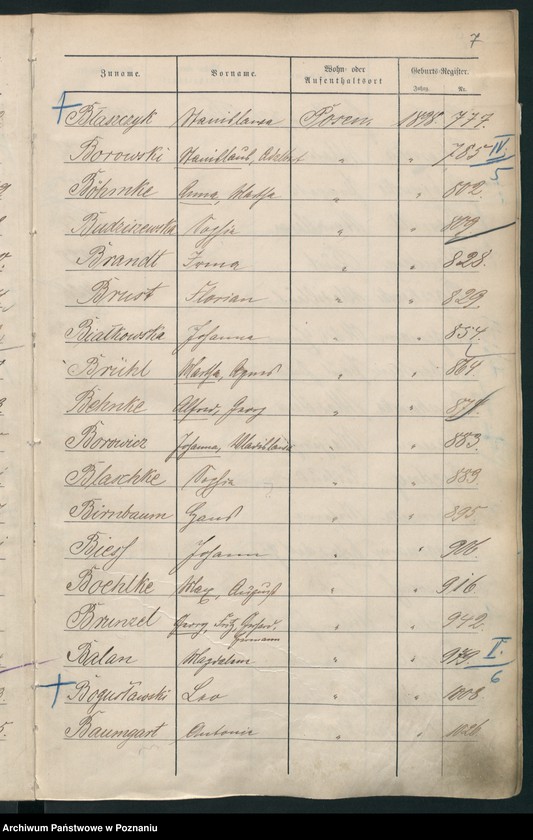 7
Zuname. Vorname. Wohn- oder Aufenthaltsort Geburts-Register.
Jahrg. Nr.
Błaszczyk Stanislawa Posen 1898. 777.
Borowski Stanislaus, Adalbert " " 785 IV/5
Böhmke Anna, Martha " " 802
Budziszewska Sophie " " 809
Brandt Irma " " 828.
Brust Florian " " 829.
Białkowska Johanna " " 857
Brühl Martha, Agnes " " 864
Behnke Alfred, Georg " "
Borowicz Johanna, Wladislawa " " 883
Blaschke Sophie " " 889.
Birnbaum Hans " " 895
Biesch Johann " " 906
Boehlke Max, August " " 916
Brunzel Georg, Fritz, Gerhard, Hermann " " 942.
Balan Magdalena " " 979 I/6
Bogusławski Leo " " 1008
Baumgart Antonie " " 1026.
Archiwum Państwowe w Poznaniu